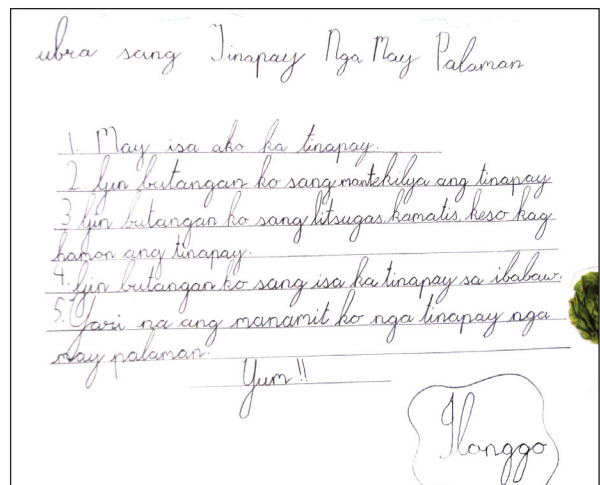 ubra sang Tinapay Nga May Palaman
1. May isa ako ka tinapay.
2 Gin butangan ko sang mantekilya ang tinapay
3 Gin butangan ko sang litsugas, kamatis, keso kag
hamon ang tinapay.
4. Gin butangan ko sang isa ka tinapay sa ibabaw.
5. Yari na ang manamit ko nga tinapay nga
may palaman.
Yum!!
Ilonggo